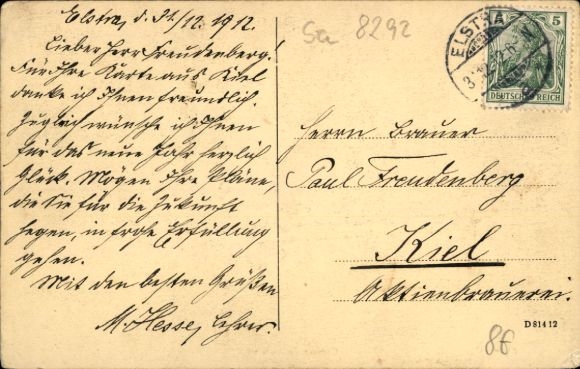 Elstra, d. 31./12. 1912.
Lieber Herr Freudenberg!
Für Ihre Karte aus Kiel
danke ich Ihnen freundlich.
Zugleich wünsche ich Ihnen
für das neue Jahr herzlich
Glück. Mögen Ihre Pläne,
die Sie für die Zukunft
hegen, in frohe Erfüllung
gehen.
Mit den besten Grüßen
M. Hesse, Lehrer.
Sa 8292
ELSTRA
5
DEUTSCHES REICH
Herrn Brauer
Paul Freudenberg
Kiel
Aktienbrauerei.
D 81412
86